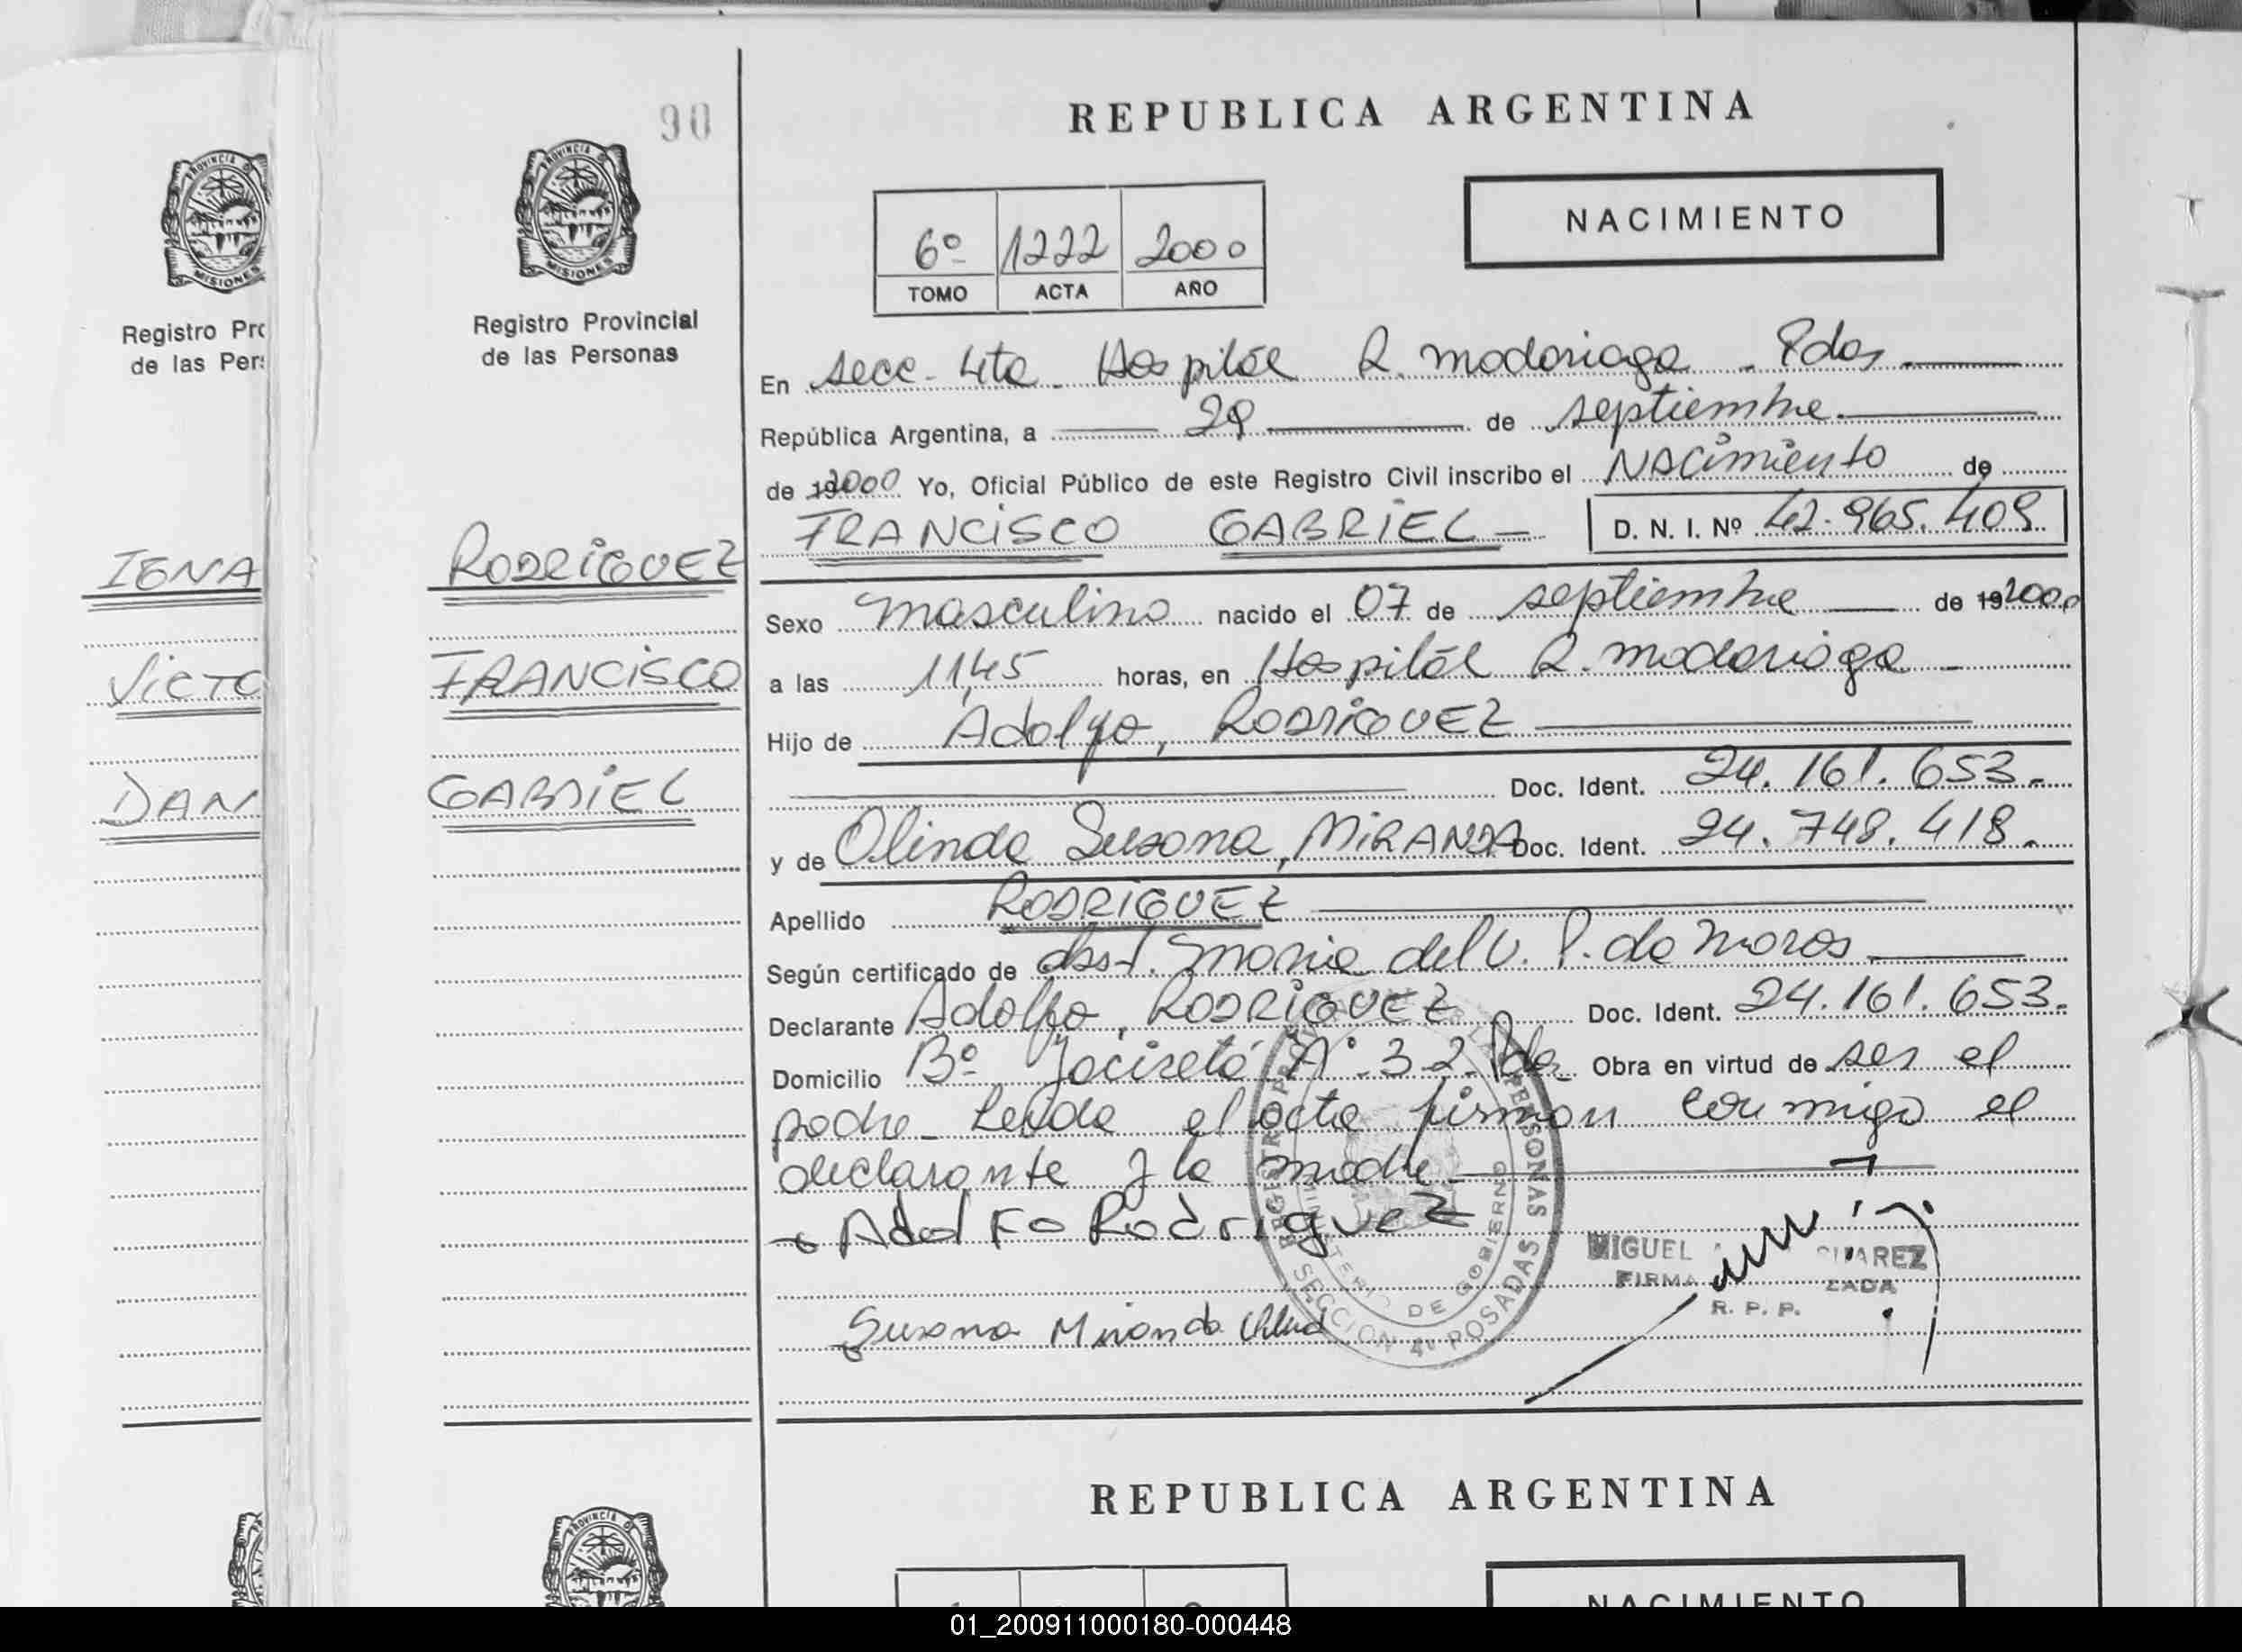 90
REPUBLICA ARGENTINA
NACIMIENTO
6º 1222 2000
TOMO ACTA AÑO
PROVINCIA D MISIONES
Registro Pro
de las Pers
PROVINCIA D MISIONES
Registro Provincial
de las Personas
En secc. 4ta. Hospital R. madariaga. Pdas
República Argentina, a 29 de septiembre.
de 192000 Yo, Oficial Público de este Registro Civil inscribo el NACimiento de
FRANCISCO GABRIEL D. N. I. Nº 42.965.409
IGNA
RODRIGUEZ
Sexo masculino nacido el 07 de septiembre de 192000
VICTO
FRANCISCO
a las 11,45 horas, en Hospital R. madariaga
Hijo de Adolfo, RODRIGUEZ
DAN
GABRIEL
Doc. Ident. 24.161.653.
y de Olinda Susana, MIRANDA Doc. Ident. 24.748.418.
Apellido RODRIGUEZ
Según certificado de obst. maria del V. P. de moros
Declarante Adolfo, RODRIGUEZ Doc. Ident. 24.161.653.
Domicilio Bº Yaciretá Nº 32. Pdas Obra en virtud de ser el
padre. Leída el acta firman conmigo el
declarante y la madre
Adolfo Rodriguez
Susana Miranda
REGISTRO PERSONAS
MINISTERIO DE GOBIERNO
SECCION 4º POSADAS
MIGUEL SUAREZ
FIRMA ZADA
R. P. P.
REPUBLICA ARGENTINA
PROVINCIA D
NACIMIENTO
01_200911000180-000448